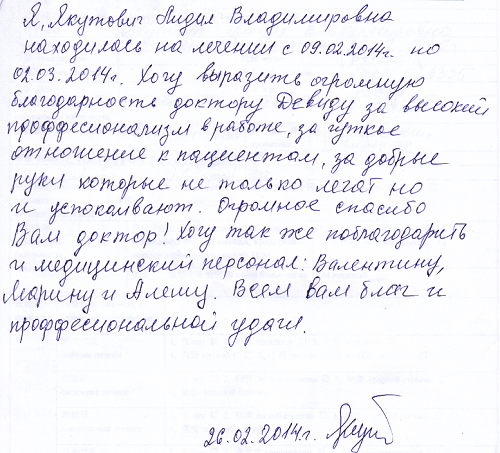 Я, Якутович Лидия Владимировна
находилась на лечении с 09.02.2014г. по
02.03.2014г. Хочу выразить огромную
благодарность доктору Девиду за высокий
проффесионализм в работе, за чуткое
отношение к пациентам, за добрые
руки которые не только лечат но
и успокаивают. Огромное спасибо
Вам доктор! Хочу так же поблагодарить
и медицинский персонал: Валентину,
Марину и Алешу. Всем вам благ и
проффесиональной удачи.
26.02.2014г.